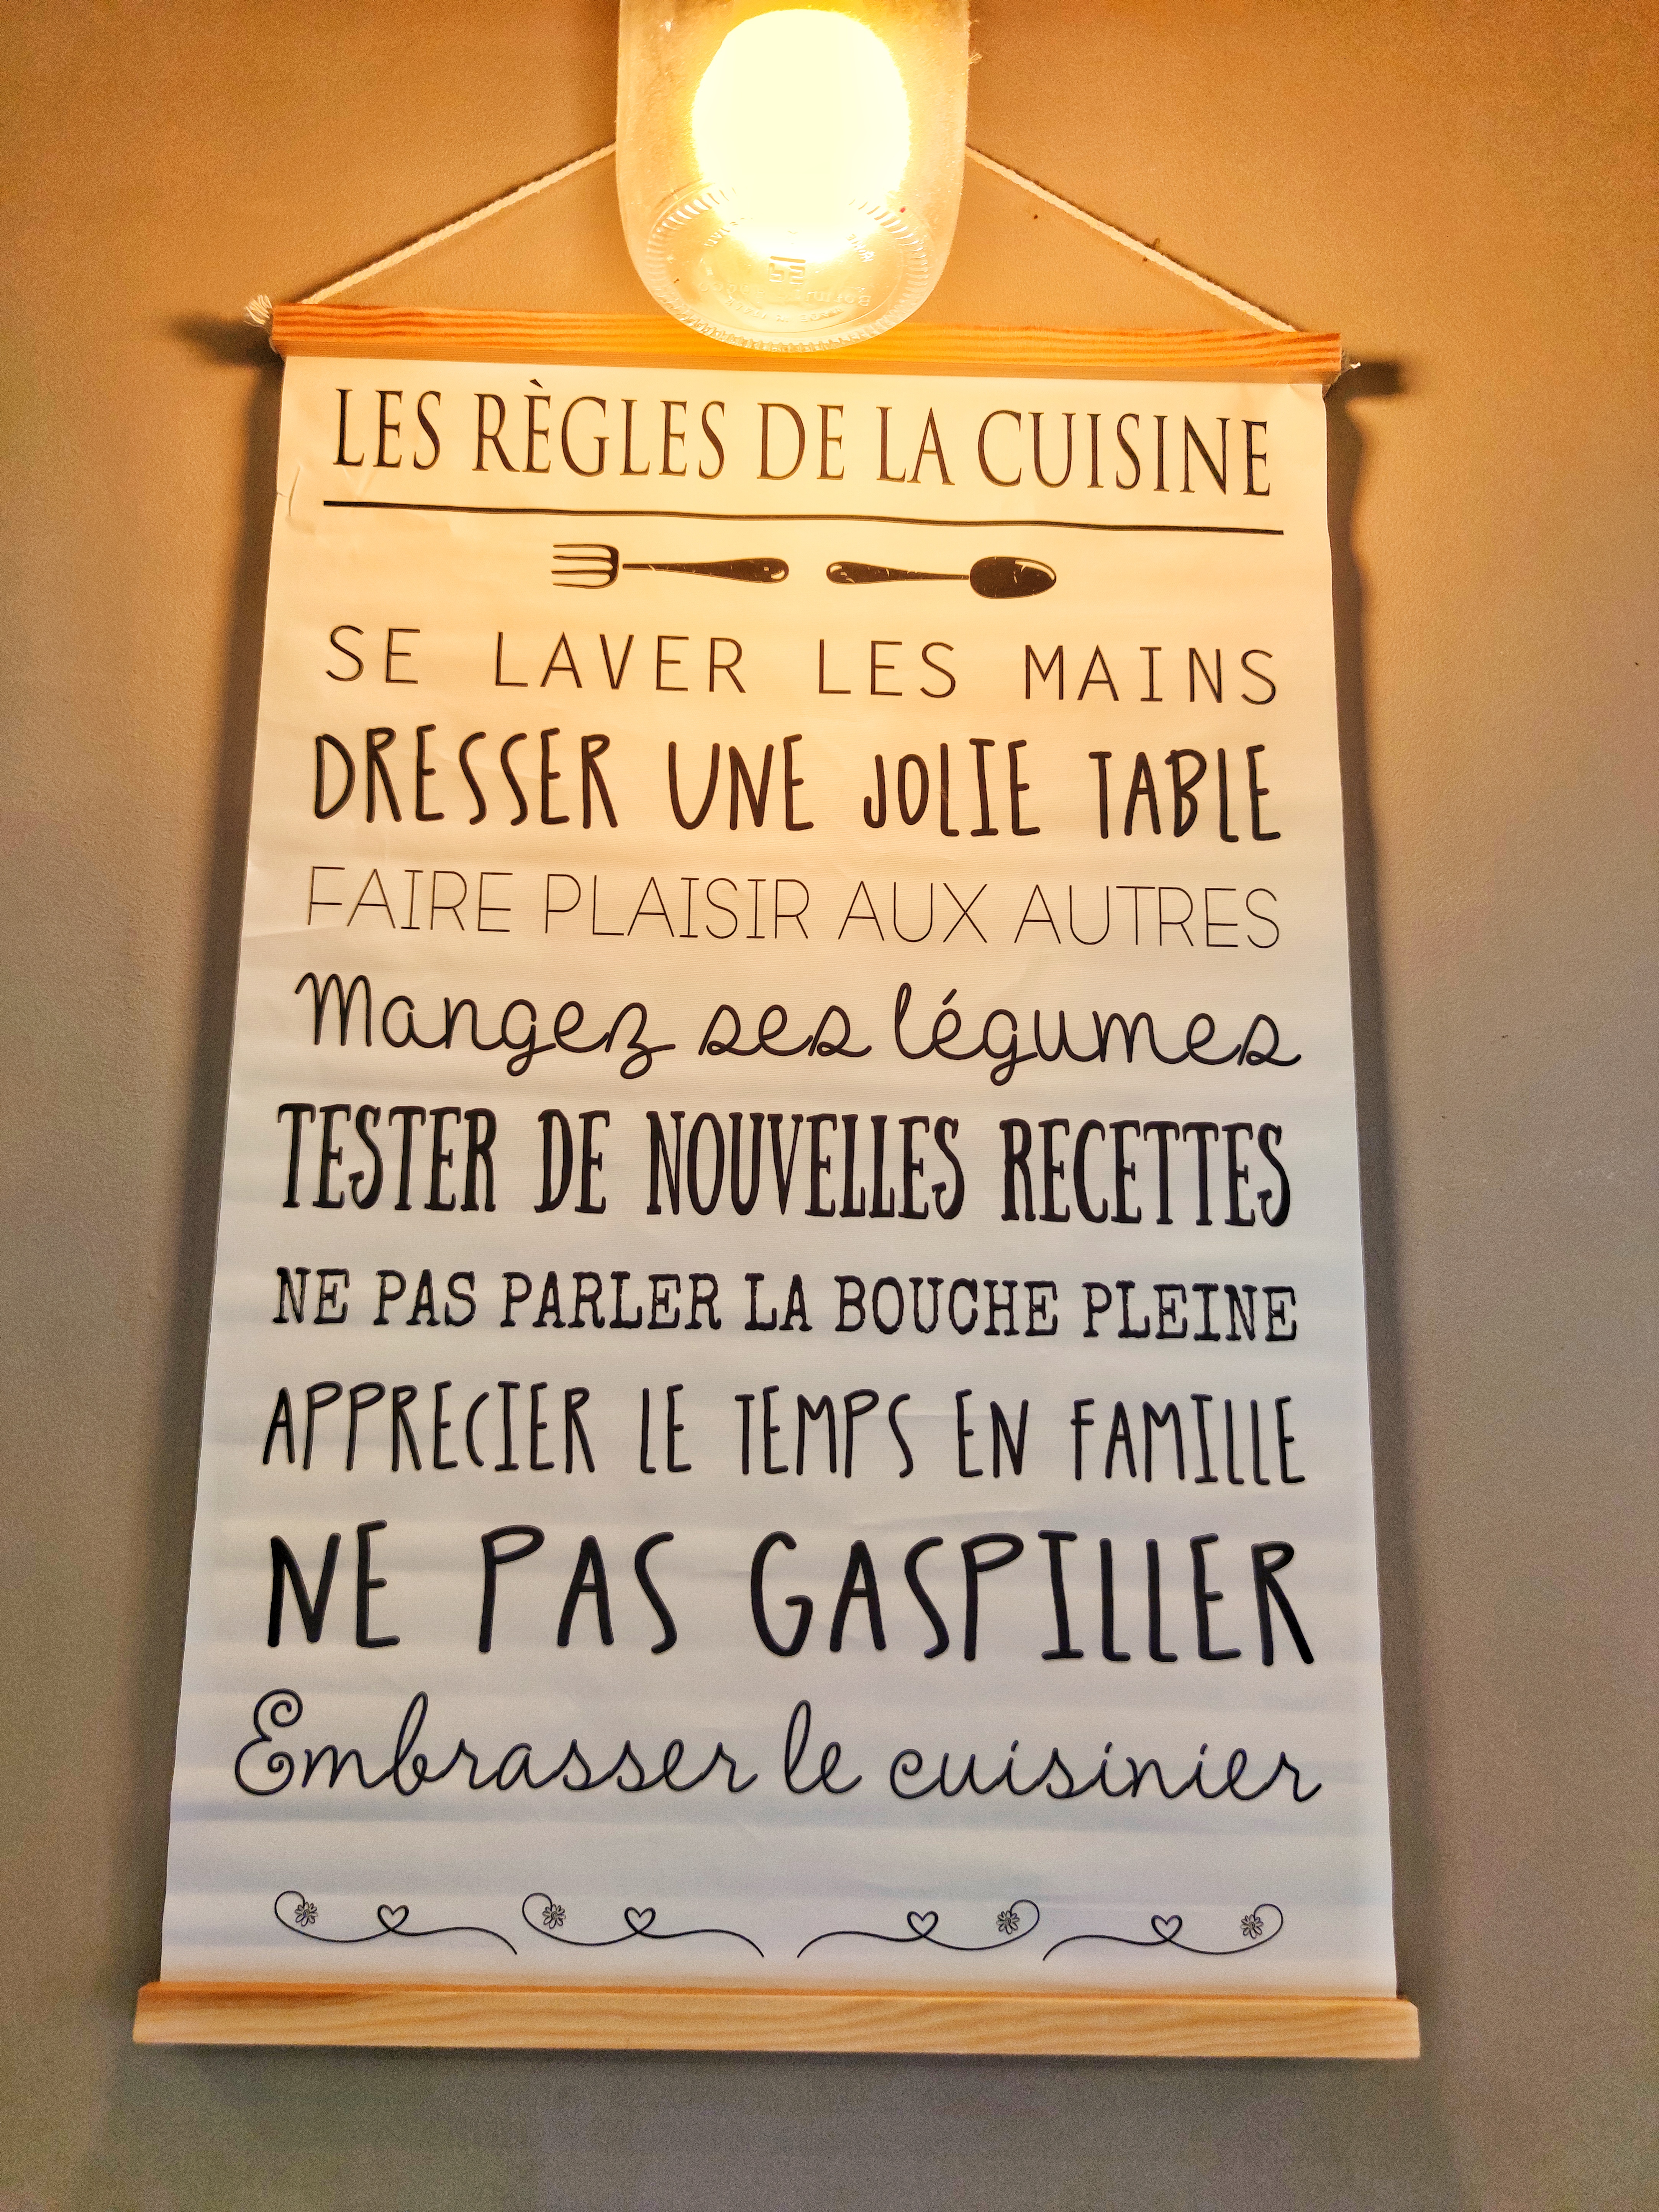 LES RÈGLES DE LA CUISINE
SE LAVER LES MAINS
DRESSER UNE JOLIE TABLE
FAIRE PLAISIR AUX AUTRES
Mangez ses légumes
TESTER DE NOUVELLES RECETTES
NE PAS PARLER LA BOUCHE PLEINE
APPRECIER LE TEMPS EN FAMILLE
NE PAS GASPILLER
Embrasser le cuisinier